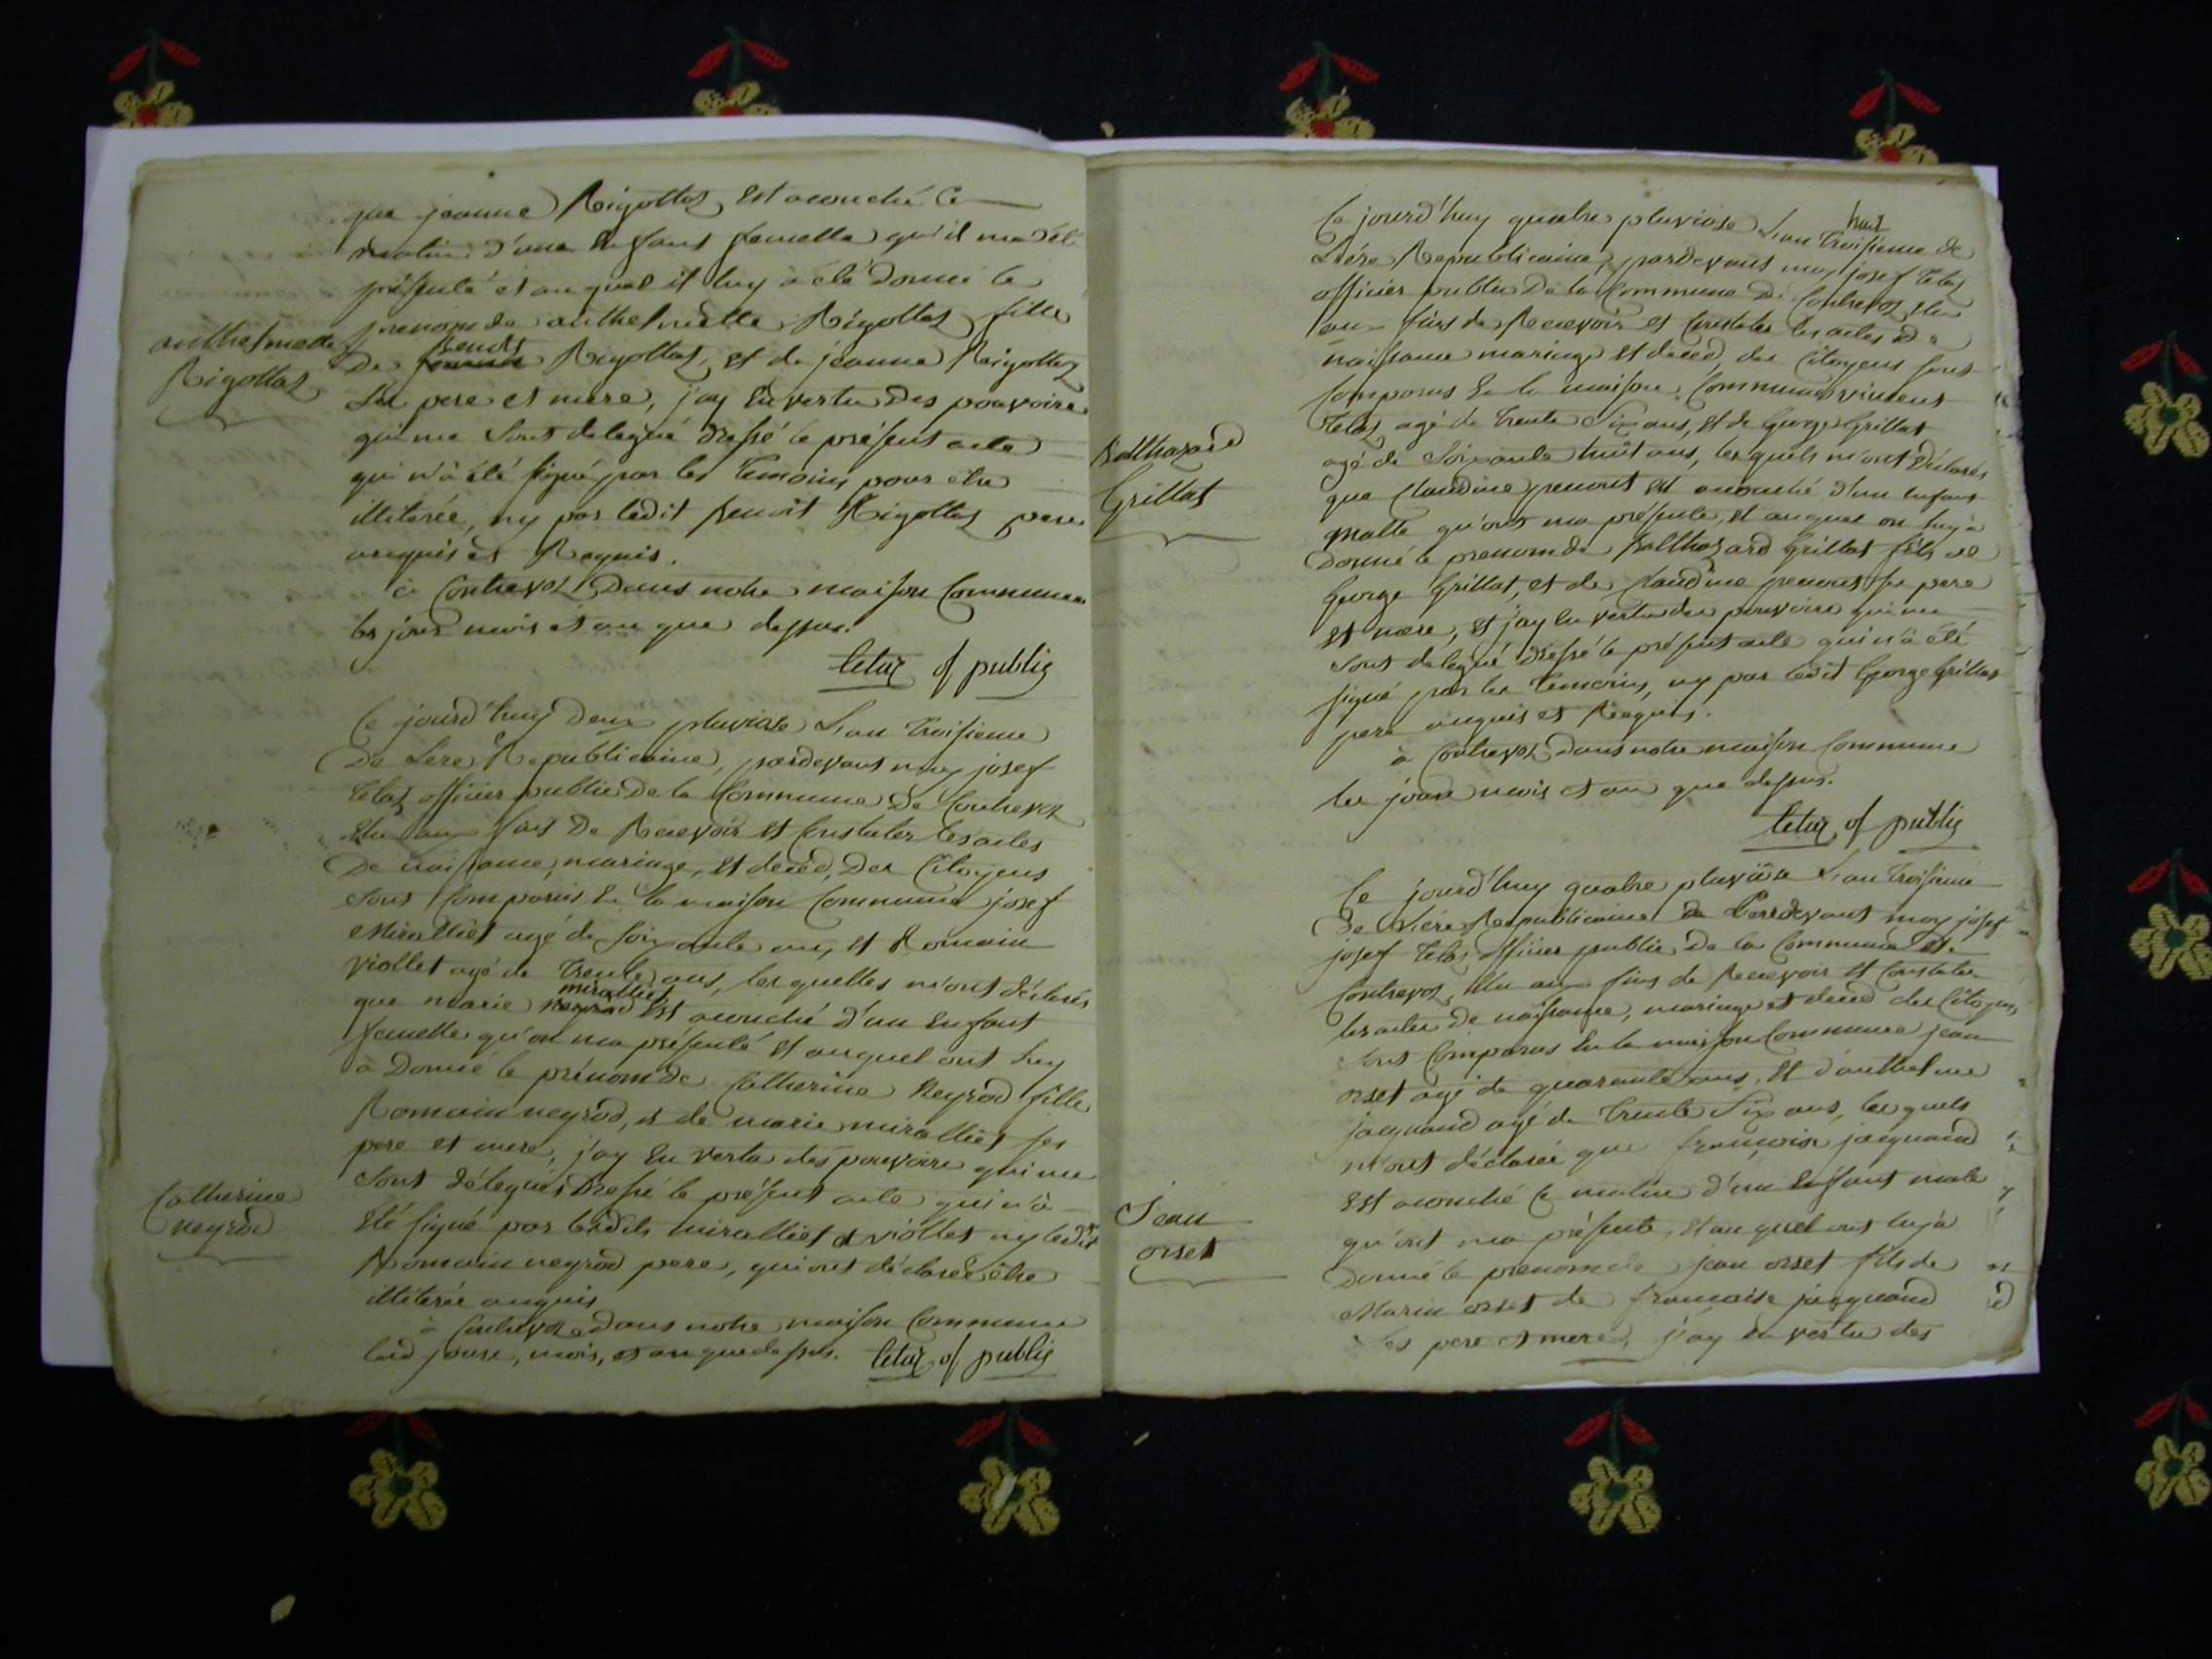 que jeanne Rigottaz Est acouché Ce
matin d'une Enfant femelle qu'il
présenté et auquel il luy à été donné le
prenom de anthelmette Rigottaz fille
anthelmette
Rigottaz
De Benoit Rigottaz, et de jeanne Rigottaz
pere et mere, j'ay En vertu Des pouvoirs
qui me Sont delegué dressé le présent acte
qui n'à été signé par les Temoins pour etre
illiterée, ny par ledit benoit Rigottaz pere
enquis et Requis.
à Contrevoz Dans notre maison Commune
les jours mois et an que dessus.
tetaz of public
Ce jourd'huy Deux pluviose L'an Troisieme
De Lere Republicaine, pardevant moy josef
Tetaz officier public De la Commune De Contrevoz
Elu aux fins De Recevoir et Constater les actes
De naissance, mariage, et deced, Des Citoyens
Sont Comparus En la maison Commune josef
Miralliet agé de soixante ans, et Romain
viollet agé de Trente ans, les quelles m'ont déclarés
miralliet
que marie neyrod Est acouché d'un Enfant
femelle qu'on ma présenté et auquel ont luy
à Donné le prénom de Catherine neyrod fille
Romain neyrod, et de marie miralliet ses
pere et mere, j'ay En vertu des pouvoirs qui me
Sont délegués Dressé le présent acte qui n'à
Catherine
neyrod
Eté signé par lesdits miralliet et viollet ny ledit
Romain neyrod pere, qui ont déclarée être
illiterée enquis
à Contrevoz Dans notre maison Commune
jours, mois, et an que dessus. tetaz of public
huit
Ce jourd'huy quatre pluviose L'an Troisieme de
L'ére Republicaine, pardevant moy josef Tetaz
officier public De la Commune De Contrevoz Elu
aux fins de Recevoir et Constater les actes De
naissance mariage et deced, des Citoyens sont
Comparus En la maison Commune vincent
Tetaz agé de Trente Six ans, et de George Grillat
agé de Soixante huit ans, les quels m'ont déclarés
Balthazard
Grillat
que Claudine est acouché d'un Enfant
malle qu'ont ma présenté, et auquel on luy à
Donné le prenom de Balthazard Grillat fils de
George Grillat, et de Claudine pere
et mere, et j'ay En vertu des pouvoirs qui me
Sont delegué dressé le présent acte qui n'à été
signé par les Temoins, ny par ledit George Grillat
pere enquis et Requis.
à Contrevoz Dans notre maison Commune
les jours mois et an que dessus.
tetaz of public
Ce jourd'huy quatre pluviose L'an Troisieme
De L'ére Republicaine Pardevant moy josef
josef Tetaz officier public De la Commune de
Contrevoz, Elu aux fins de Recevoir et Constater
les actes De naissance, mariage et deced des Citoyens
Sont Comparus En la maison Commune jean
orset agé de quarante ans, et d'anthelme
jacquand agé de Trente Six ans, les quels
m'ont déclarée que françoise jacquand
est acouché Ce matin d'un Enfant male
Jean
orset
qu'ont ma présenté, et auquel ont luy à
Donné le prenom de jean orset fils de
Marin orset de francoise jacquand
Ses pere et mere, j'ay En vertu des